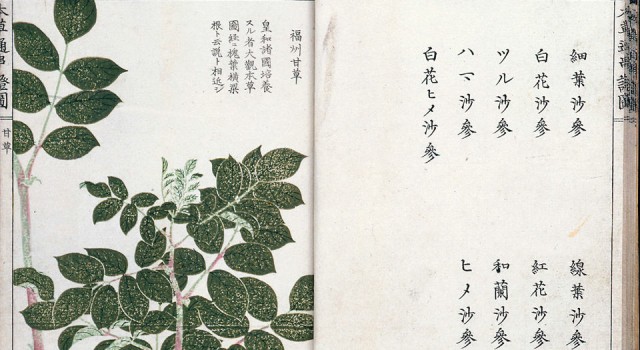 本草通串證圖
細葉沙參
線葉沙參
白花沙參
紅花沙參
ツル沙參
和蘭沙參
ハマ沙參
ヒメ沙參
白花ヒメ沙參
福州甘草
皇和諸國培養
スル者大觀本草
圖経ニ槐葉横梁
根ト云説ト相近シ
本草通串證圖
甘草